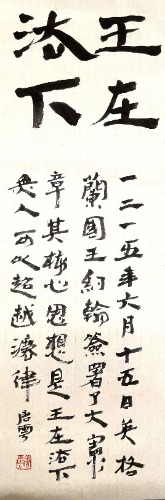 王在
法下
一二一五年六月十五日英格
蘭國王約翰簽署了大憲
章其核心思想是王在法下
無人可以超越灋律